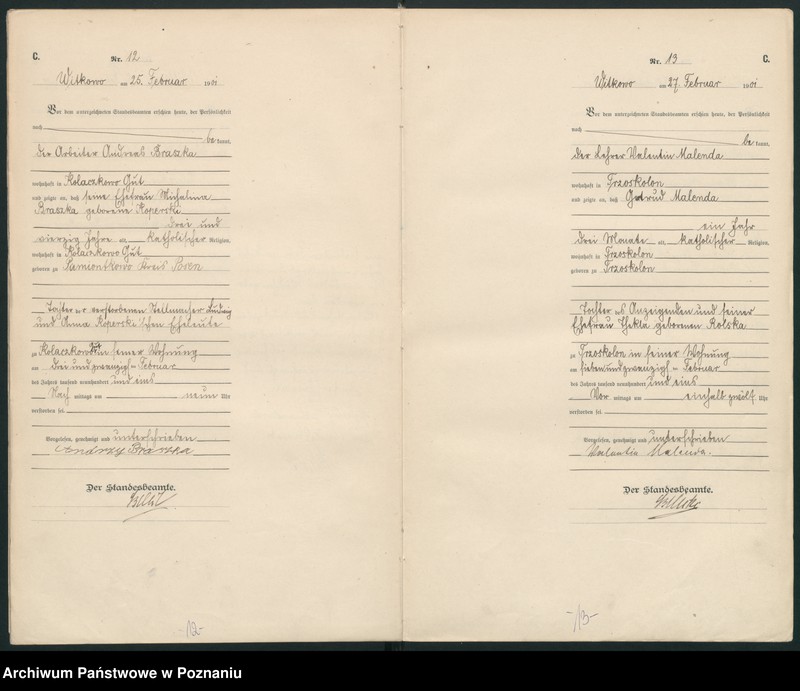 C.
Nr. 12
Witkowo am 25. Februar 1901
Vor dem unterzeichneten Standesbeamten erschien heute, der Persönlichkeit
nach
be kannt,
der Arbeiter Andreas Braszka
wohnhaft in Kolaczkowo Gut
und zeigte an, daß seine Ehefrau Michalina
Braszka geborene Koperski
drei und
vierzig Jahre alt, katholischer Religion,
wohnhaft in Kolaczkowo Gut
geboren zu Kreis
Tochter der verstorbenen Stellmacher Ludwig
und Anna Koperski'schen Eheleute
zu Kolaczkowo Gut in seiner Wohnung
am drei und zwanzigsten Februar
des Jahres tausend neunhundert und eins
Nach mittags um neun Uhr
verstorben sei
Vorgelesen, genehmigt und unterschrieben
Andrzy Braszka
Der Standesbeamte.
-12-
Nr. 13
C.
Witkowo am 27. Februar 1901
Vor dem unterzeichneten Standesbeamten erschien heute, der Persönlichkeit
nach
be kannt,
der Lehrer Valentin Malenda
wohnhaft in Trzoskolon
und zeigte an, daß Gertrud Malenda
ein Jahr
drei Monate alt, katholischer Religion,
wohnhaft in Trzoskolon
geboren zu Trzoskolon
Tochter des Anzeigenden und seiner
Ehefrau Thekla geborenen Rolska
zu Trzoskolon in seiner Wohnung
am sieben und zwanzigsten Februar
des Jahres tausend neunhundert und eins
Vor mittags um einhalb zwölf Uhr
verstorben sei
Vorgelesen, genehmigt und unterschrieben
Valentin Malenda.
Der Standesbeamte.
-13-
Archiwum Państwowe w Poznaniu